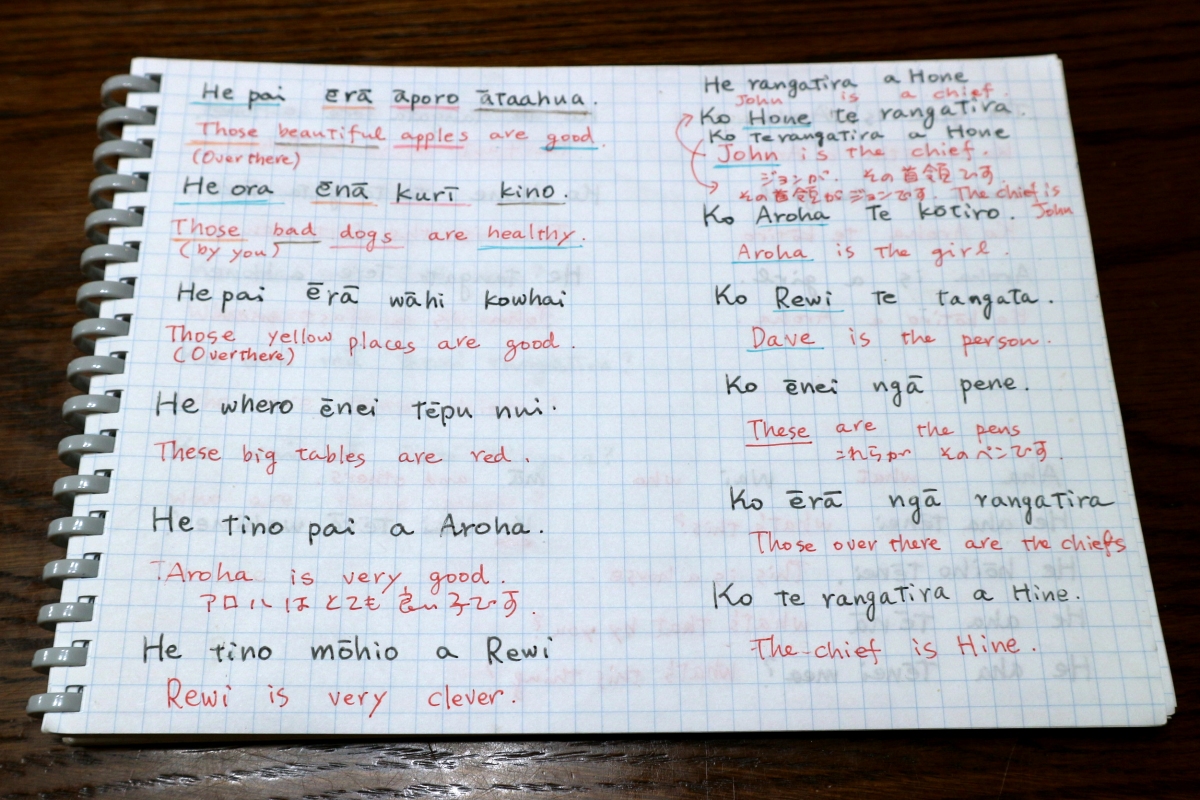 He pai ērā āporo ātaahua.
Those beautiful apples are good
(Over there)
He ora ēnā kurī kino.
Those bad dogs are healthy.
(by you)
He pai ērā wāhi kowhai
Those yellow places are good.
(Over there)
He whero ēnei tēpu nui.
These big tables are red.
He tino pai a Aroha.
Aroha is very good.
アロハはとても良い子です.
He tino mōhio a Rewi
Rewi is very clever.
He rangatira a Hone
John is a chief.
Ko Hone te rangatira.
Ko te rangatira a Hone
John is the chief.
ジョンが. その首領です.
その首領がジョンです. The chief is John
Ko Aroha te kōtiro.
Aroha is the girl.
Ko Rewi te tangata.
Dave is the person.
Ko ēnei ngā pene.
These are the pens
これらが そのペンです.
Ko ērā ngā rangatira
Those over there are the chiefs
Ko te rangatira a Hine.
The chief is Hine.